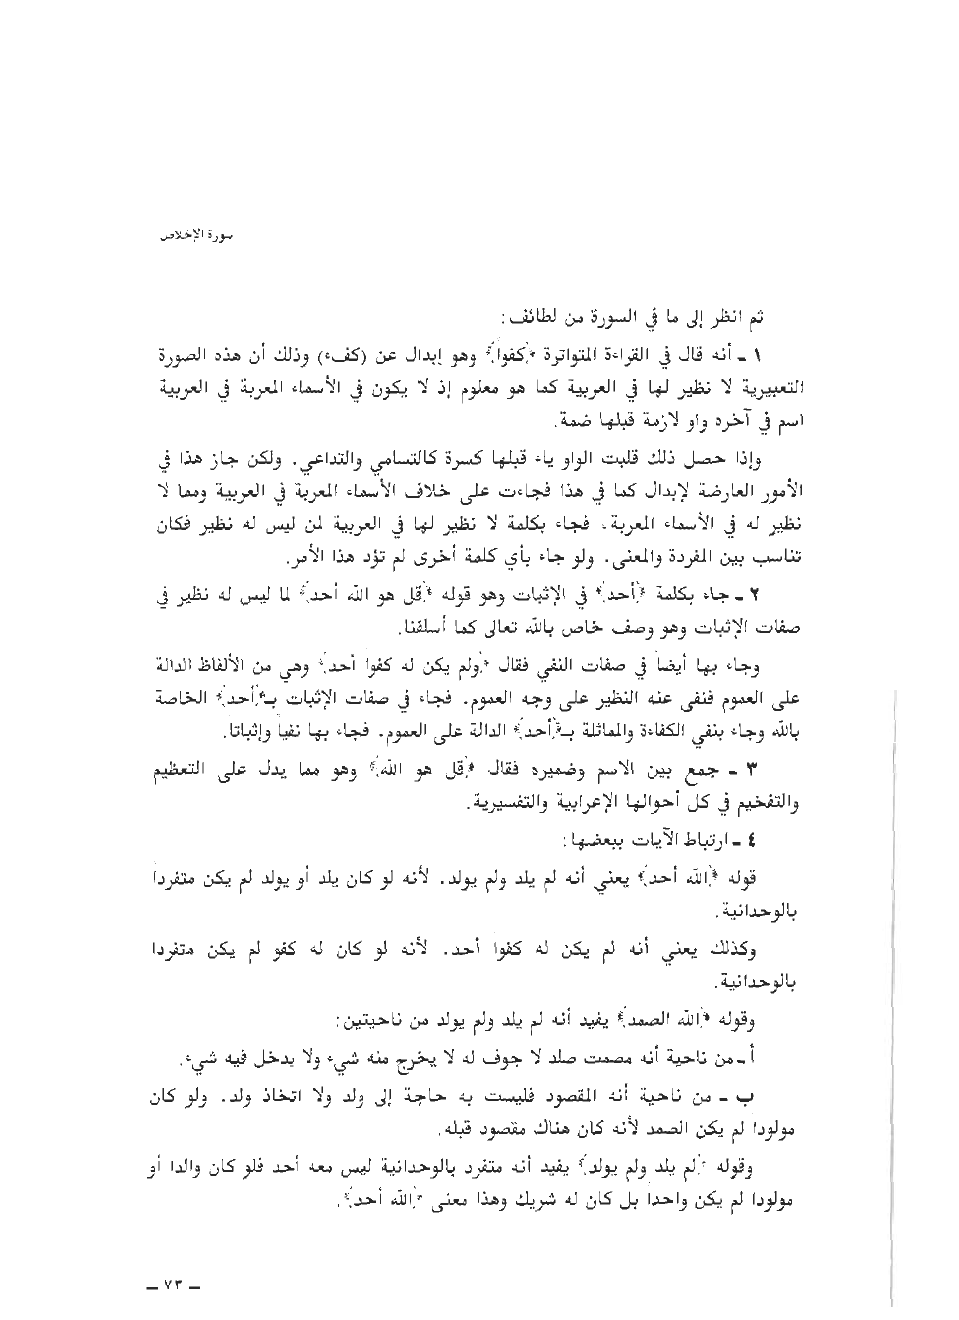 سورة الإخلاص
ثم انظر إلى ما في السورة من لطائف:
١ ـ أنه قال في القراءة المتواترة ﴿كفوا﴾ وهو إبدال عن (كفء) وذلك أن هذه الصورة
التعبيرية لا نظير لها في العربية كما هو معلوم إذ لا يكون في الأسماء المعربة في العربية
اسم في آخره واو لازمة قبلها ضمة.
وإذا حصل ذلك قلبت الواو ياء قبلها كسرة كالتسامي والتداعي. ولكن جاز هذا في
الأمور العارضة لإبدال كما في هذا فجاءت على خلاف الأسماء المعربة في العربية ومما لا
نظير له في الأسماء المعربة، فجاء بكلمة لا نظير لها في العربية لمن ليس له نظير فكان
تناسب بين المفردة والمعنى. ولو جاء بأي كلمة أخرى لم تؤد هذا الأمر.
٢ ـ جاء بكلمة ﴿أحد﴾ في الإثبات وهو قوله ﴿قل هو الله أحد﴾ لما ليس له نظير في
صفات الإثبات وهو وصف خاص بالله تعالى كما أسلفنا.
وجاء بها أيضاً في صفات النفي فقال ﴿ولم يكن له كفوا أحد﴾ وهي من الألفاظ الدالة
على العموم فنفى عنه النظير على وجه العموم. فجاء في صفات الإثبات بـ﴿أحد﴾ الخاصة
بالله وجاء بنفي الكفاءة والمماثلة بـ﴿أحد﴾ الدالة على العموم. فجاء بها نفياً وإثباتا.
٣ ـ جمع بين الاسم وضميره فقال ﴿قل هو الله﴾ وهو مما يدل على التعظيم
والتفخيم في كل أحوالها الإعرابية والتفسيرية.
٤ ـ ارتباط الآيات ببعضها:
قوله ﴿الله أحد﴾ يعني أنه لم يلد ولم يولد. لأنه لو كان يلد أو يولد لم يكن متفردا
بالوحدانية.
وكذلك يعني أنه لم يكن له كفوا أحد. لأنه لو كان له كفو لم يكن متفردا
بالوحدانية.
وقوله ﴿الله الصمد﴾ يفيد أنه لم يلد ولم يولد من ناحيتين:
أ ـ من ناحية أنه مصمت صلد لا جوف له لا يخرج منه شيء ولا يدخل فيه شيء.
ب ـ من ناحية أنه المقصود فليست به حاجة إلى ولد ولا اتخاذ ولد. ولو كان
مولودا لم يكن الصمد لأنه كان هناك مقصود قبله.
وقوله ﴿لم يلد ولم يولد﴾ يفيد أنه متفرد بالوحدانية ليس معه أحد فلو كان والدا أو
مولودا لم يكن واحداً بل كان له شريك وهذا معنى ﴿الله أحد﴾.
ـ ٧٣ ـ